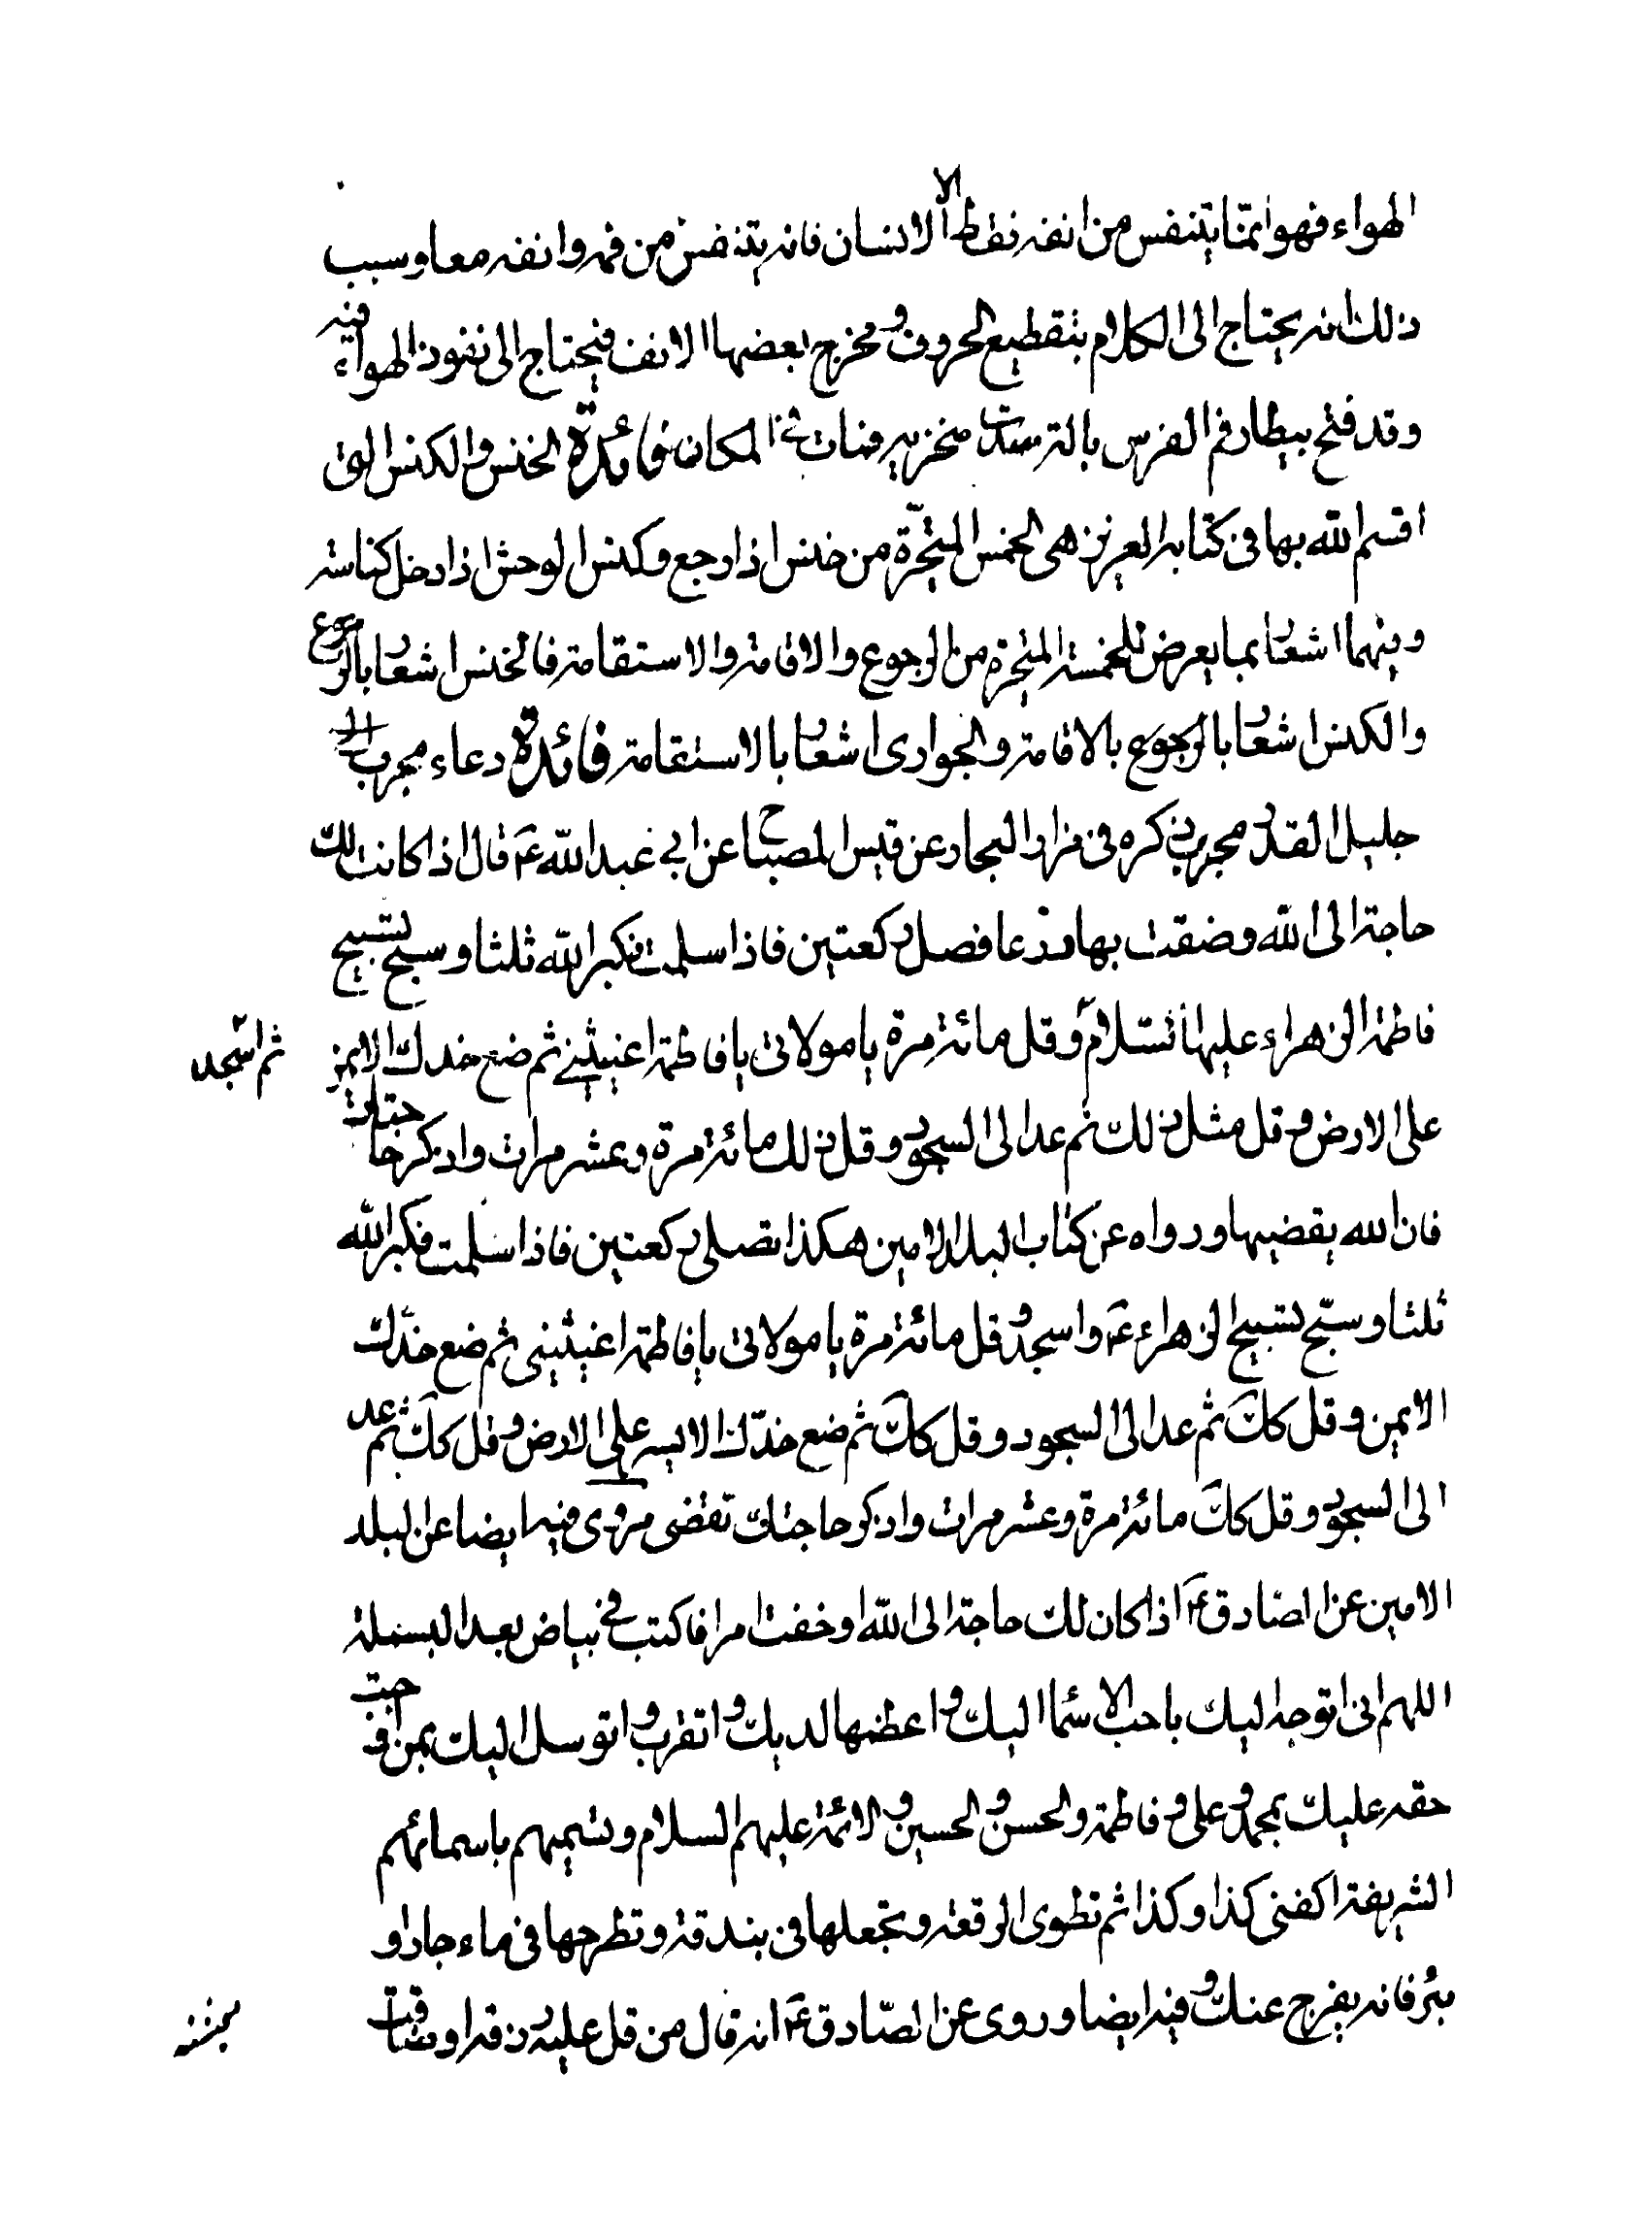 الهواء فهو انما يتنفس من انفه فقط الا الانسان فانه يتنفس من فمه وانفه معا وسبب
ذلك انه يحتاج الى الكلام بتقطيع الحروف ومخرج بعضها الانف فيحتاج الى نفوذ الهواء فيه
وقد فتح بيطار فم الفرس بالة سدت منخريه فمات في المكان فائدة الخنس والكنس التى
اقسم الله بها فى كتابه العزيز هى الخمس المتحيّرة من خنس اذا رجع وكنس الوحش اذا دخل كناسه
وبينهما اشعار بما يعرض للخمسة المتحيرة من الرجوع والاقامة والاستقامة فالخنس اشعار بالرجوع
والكنس اشعار بالاقامة والجوارى اشعار بالاستقامة فائدة دعاء مجرب
جليل القدر مجرب ذكره فى مزار البحار عن قبس المصباح عن ابي عبد الله ع قال اذا كانت لك
حاجة الى الله وضقت بها ذرعا فصل ركعتين فاذا سلمت فكبر الله ثلثا وسبح تسبيح
فاطمة الزهراء عليها السّلام ثم اسجد وقل مائة مرة يا مولاتى يا فاطمة اغيثيني ثم ضع خدك الايمن
على الارض وقل مثل ذلك ثم عد الى السجود وقل ذلك مائة مرة وعشر مرات واذكر حاجتك
فان الله يقضيها ورواه عن كتاب البلد الامين هكذا تصلى ركعتين فاذا سلمت فكبر الله
ثلثا وسبّح تسبيح الزهراء ع واسجد وقل مائة مرة يا مولاتى يا فاطمة اغيثينى ثم ضع خدّك
الايمن وقل كك ثم عد الى السجود وقل كك ثم ضع خدّك الايسر على الارض وقل كك ثم عد
الى السجود وقل كك مائة مرة وعشر مرات واذكر حاجتك تقضى مروى فيه ايضا عن البلد
الامين عن الصّادق ع اذا كان لك حاجة الى الله او خفت امرا فاكتب في بياض بعد البسملة
اللهم انى اتوجه اليك باحب الاسماء اليك واعظمها لديك واتقرب واتوسل اليك بمن اوجبت
حقه عليك بمحمد وعلى وفاطمة والحسن والحسين والائمة عليهم السلام وتسميهم باسمائهم
الشريفة اكفنى كذا وكذا ثم تطوى الرقعة وتجعلها فى بندقة وتطرحها فى ماء جار او
بئر فانه يفرج عنك وفيه ايضا وروى عن الصّادق ع انه قال من قل عليه رزقه او ضاقت